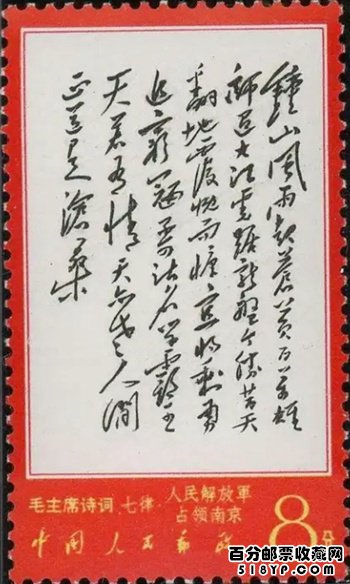 鍾山風雨起蒼黄百万雄
師過大江虎踞龍盤今勝昔天
翻地覆慨而慷宜將剩勇
追窮寇不可沽名學霸王
天若有情天亦老人間
正道是滄桑
毛主席诗词 七律·人民解放軍
占领南京
8分
中国人民邮政
百分邮票收藏网
518YP.com